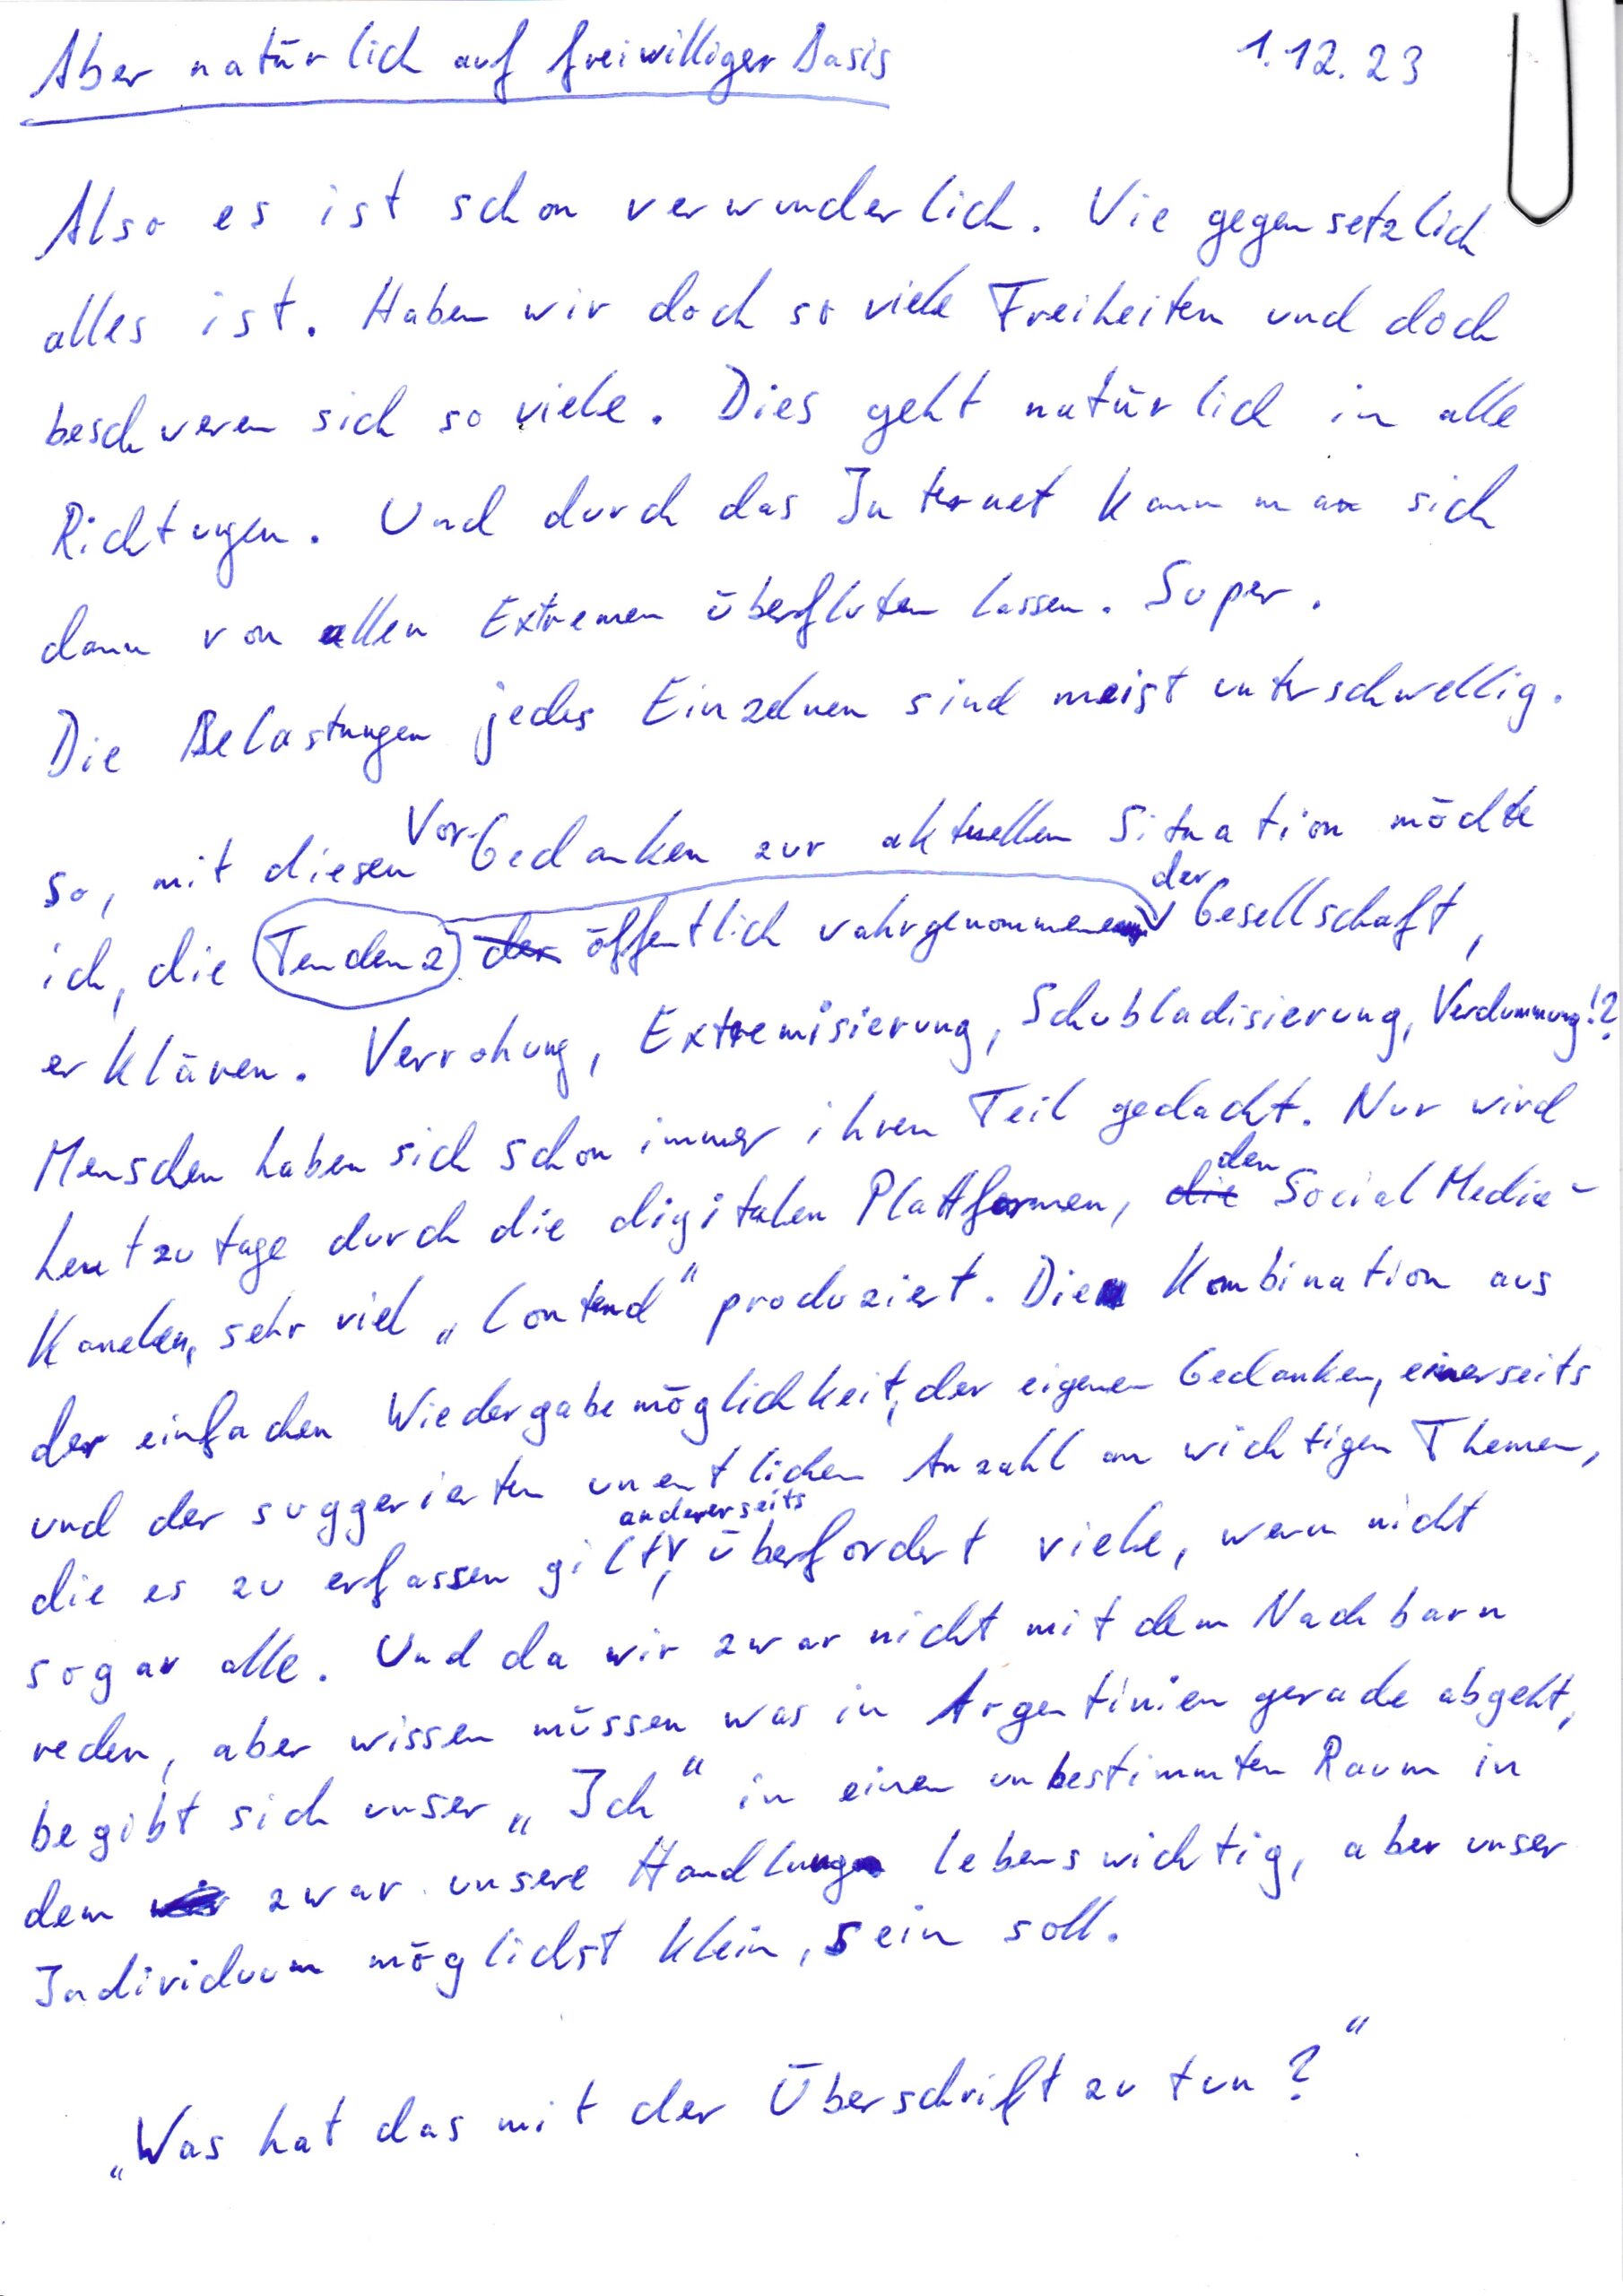 Aber natürlich auf freiwilliger Basis 1.12.23
Also es ist schon verwunderlich. Wie gegensetzlich
alles ist. Haben wir doch so viele Freiheiten und doch
beschweren sich so viele. Dies geht natürlich in alle
Richtungen. Und durch das Internet kann man sich
dann von allen Extremen überfluten lassen. Super.
Die Belastungen jedes Einzelnen sind meist unterschwellig.
So, mit diesen Vor-Gedanken zur aktuellen Situation möchte
ich, die Tendenz der öffentlich wahrgenommenen der Gesellschaft,
erklären. Verrohung, Extremisierung, Schubladisierung, Verdummung!?
Menschen haben sich schon immer ihren Teil gedacht. Nur wird
heutzutage durch die digitalen Plattformen, die den Social Media-
Kanälen, sehr viel „Contend“ produziert. Die Kombination aus
der einfachen Wiedergabemöglichkeit, der eigenen Gedanken, einerseits
und der suggerierten unentlichen Anzahl an wichtigen Themen,
die es zu erfassen gilt, andererseits überfordert viele, wenn nicht
sogar alle. Und da wir zwar nicht mit dem Nachbarn
reden, aber wissen müssen was in Argentinien gerade abgeht,
begibt sich unser „Ich“ in einen unbestimmten Raum in
dem zwar unsere Handlung lebenswichtig, aber unser
Individuum möglichst klein, sein soll.
„Was hat das mit der Überschrift zu tun?“